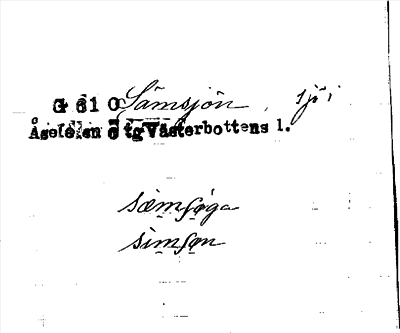 G 610 Sämsjön, sjö i
Åsele tg Västerbottens l.
sæmʃøga
simʃøn